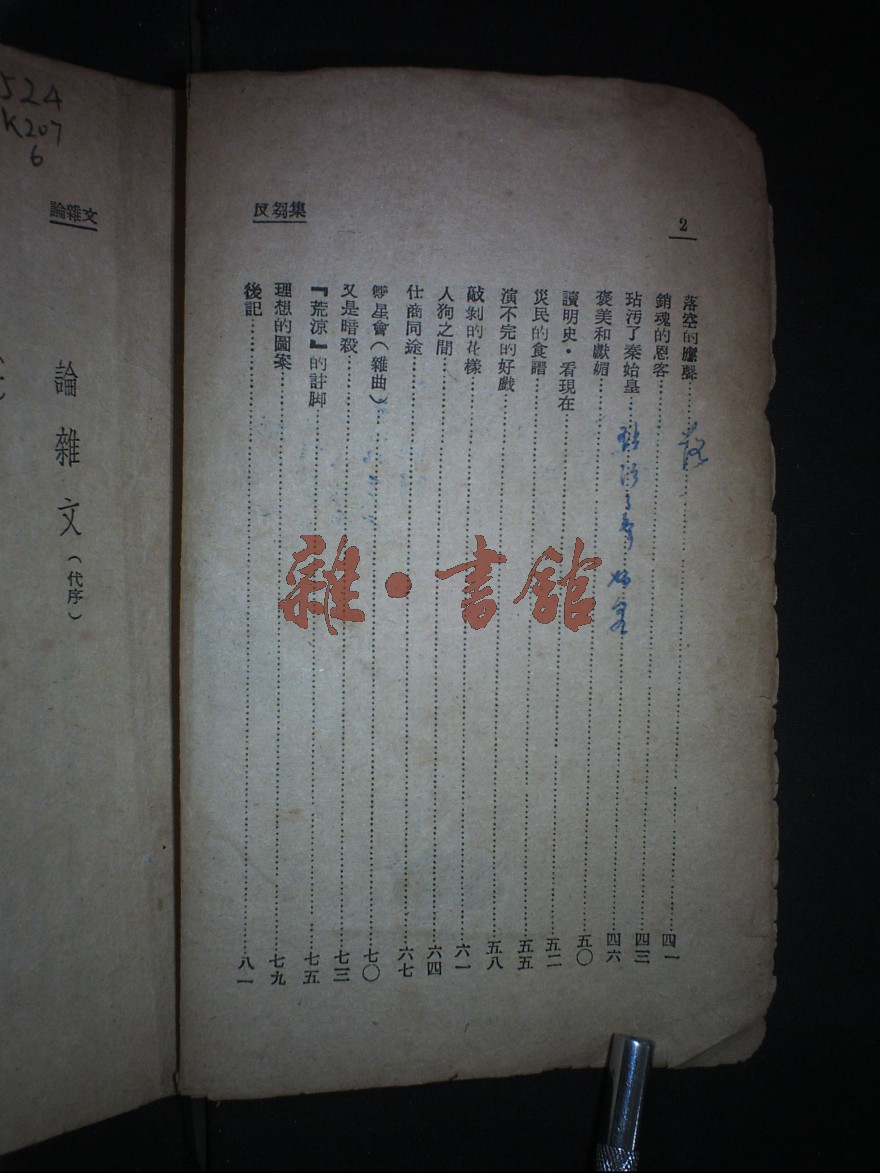 2
反芻集
落空的應聲……四一
銷魂的恩客……四三
玷汚了秦始皇……四六
褒美和獻媚……五〇
讀明史·看現在……五二
災民的食譜……五五
演不完的好戲……五八
敲剝的花樣……六一
人狗之間……六四
仕商同途……六七
星會(雜曲)……七〇
又是暗殺……七三
『荒涼』的註脚……七五
理想的圖案……七九
後記……八一
落
玷汚了秦始皇
雜·書館
524
K207
6
論雜文
論雜文(代序)